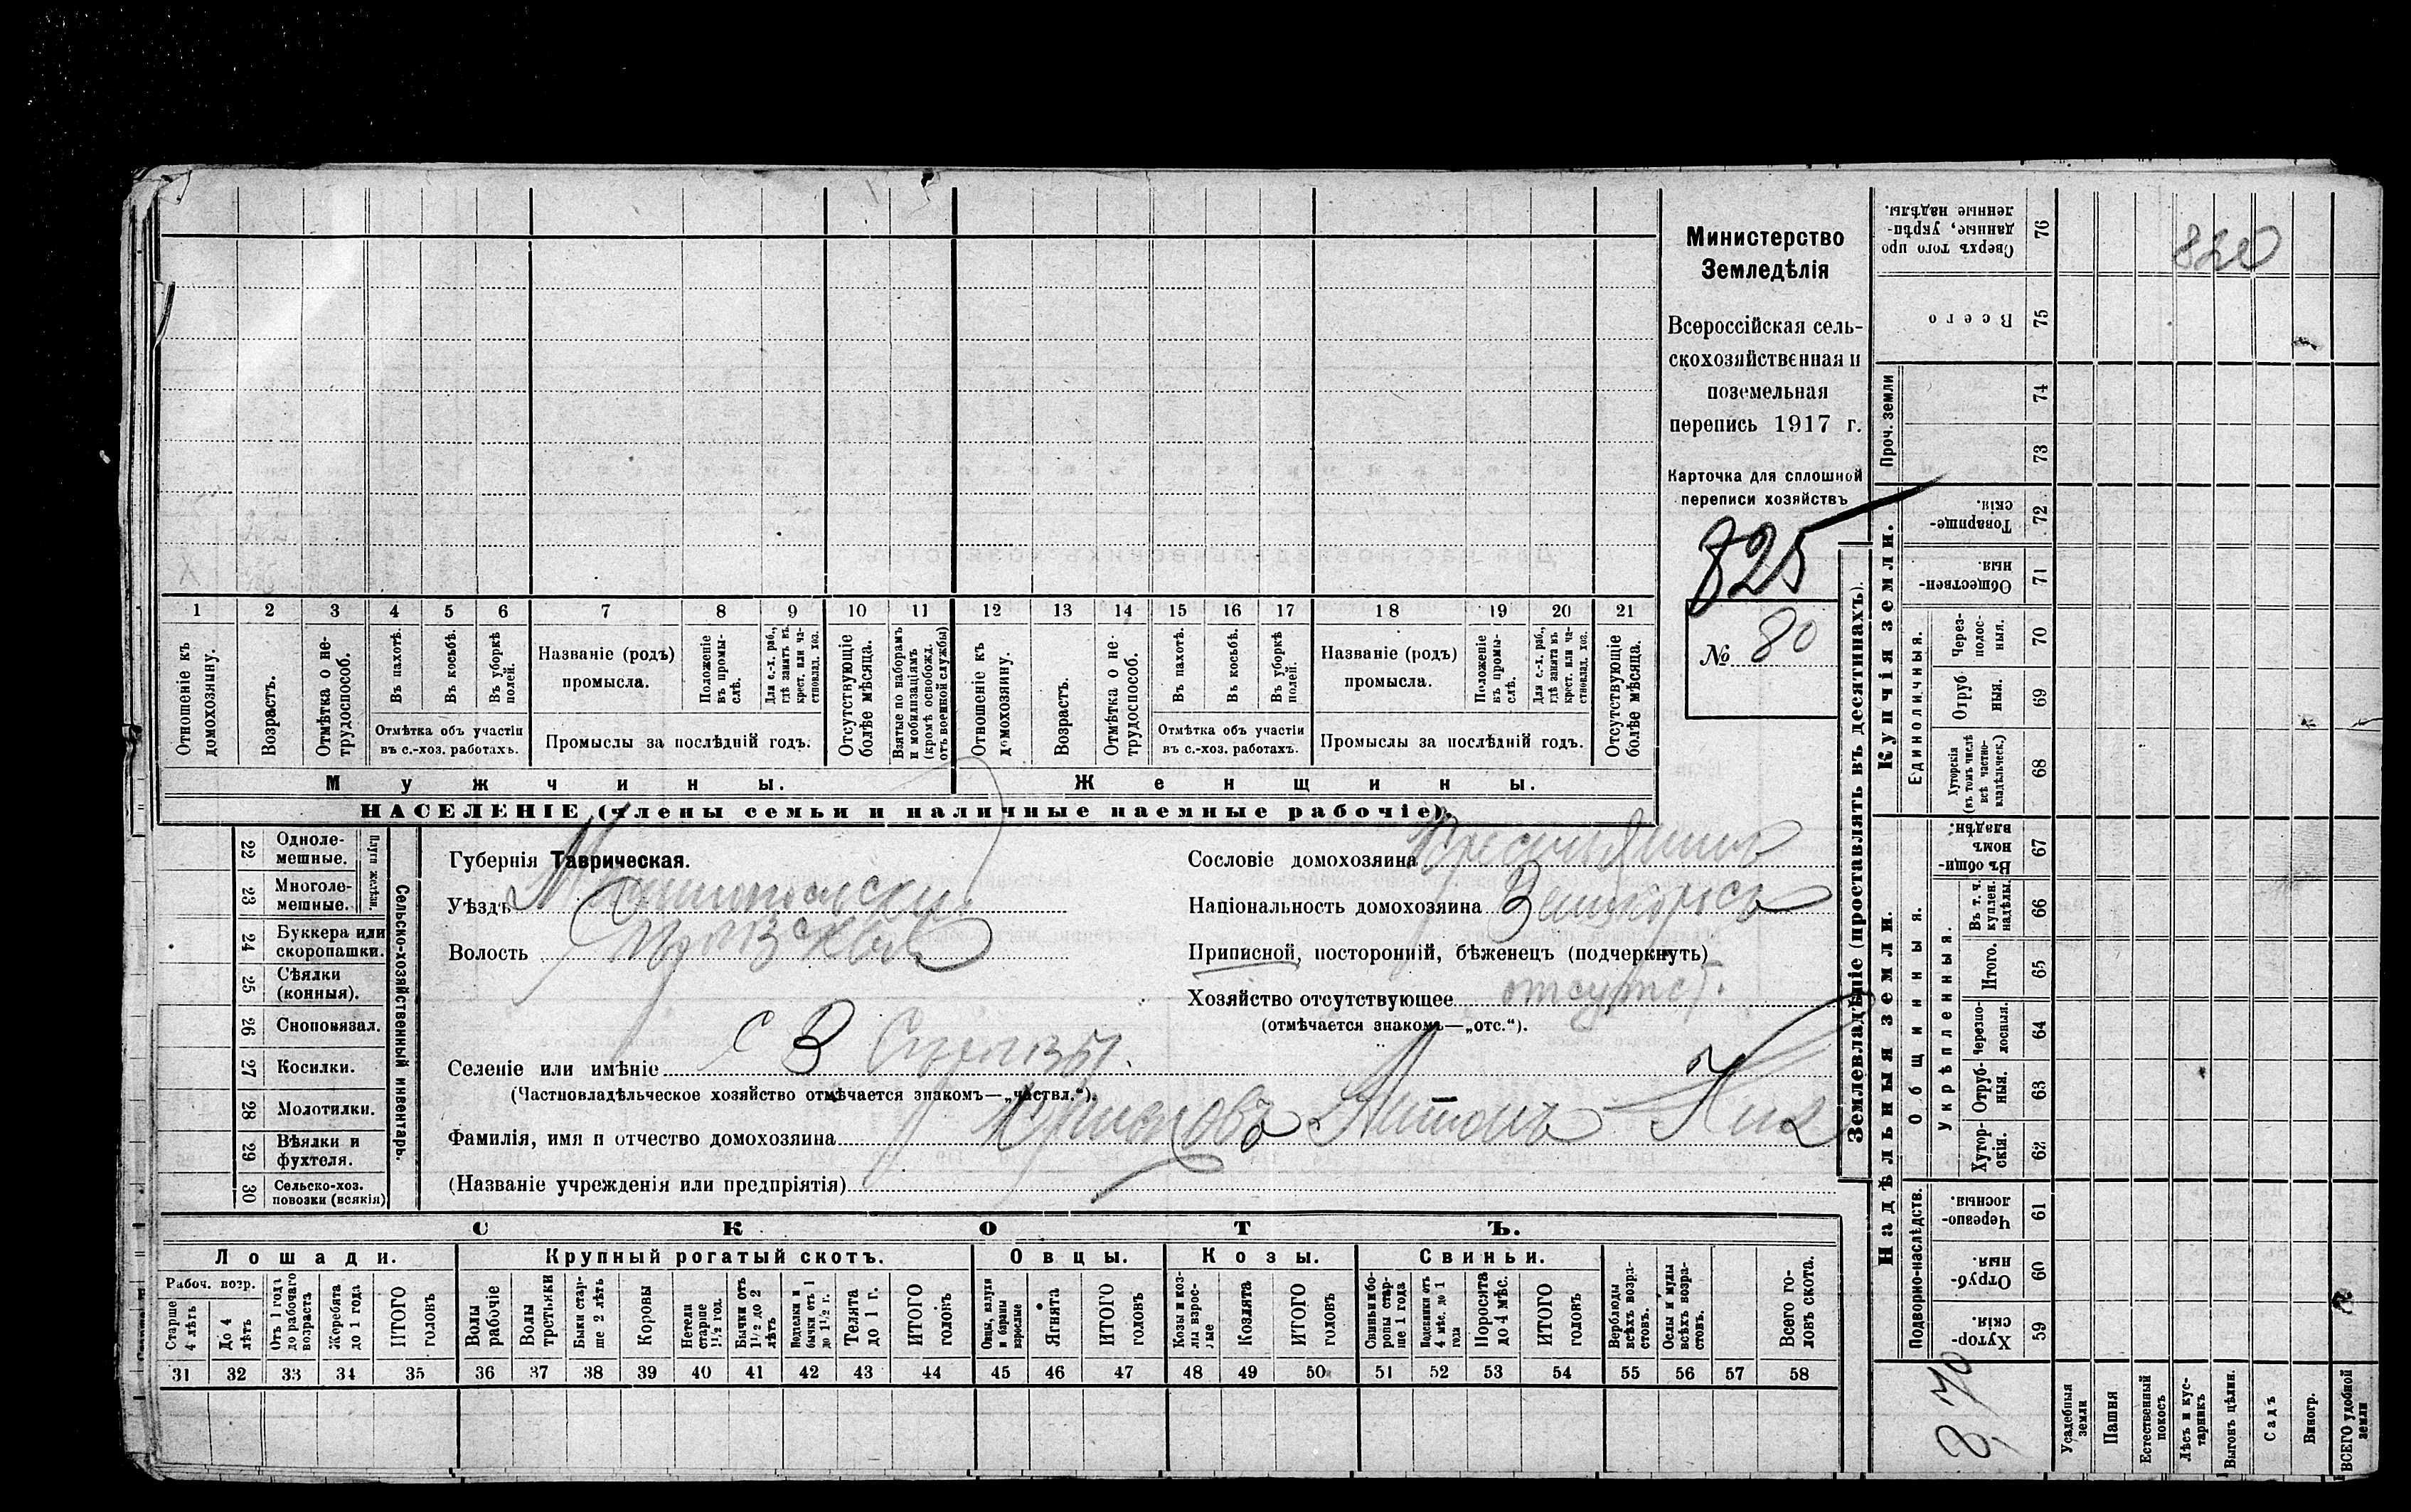 1 2 3 4 5 6 7 8 9 10 11 12 13 14 15 16 17 18 19 20 21
Отношеніе къ домохозяину.
Возрастъ.
Отмѣтка о не-
трудоспособ.
Въ пахотѣ.
Въ косьбѣ.
Въ уборкѣ
полей.
Отмѣтка объ участіи
въ с.-хоз. работахъ.
Названіе (родъ)
промысла.
Положеніе
въ промы-
слѣ.
Для с.-х. раб.,
гдѣ занятъ въ
крест. или ча-
стновлад. хоз.
Промыслы за послѣдній годъ.
Отсутствующіе
болѣе мѣсяца.
Взятые по наборамъ
и мобилизаціямъ
(кромѣ освобожд.
отъ военной службы)
Отношеніе къ
домохозяину.
Возрастъ.
Отмѣтка о не-
трудоспособ.
Въ пахотѣ.
Въ косьбѣ.
Въ уборкѣ
полей.
Отмѣтка объ участіи
въ с.-хоз. работахъ.
Названіе (родъ)
промысла.
Положеніе
въ промы-
слѣ.
Для с.-х. раб.,
гдѣ занята въ
крест. или ча-
стновлад. хоз.
Промыслы за послѣдній годъ.
Отсутствующіе
болѣе мѣсяца.
Мужчины. Женщины.
НАСЕЛЕНІЕ (члены семьи и наличные наемные рабочіе).
Министерство
Земледѣлія
Всероссійская сель-
скохозяйственная и
поземельная
перепись 1917 г.
Карточка для сплошной
переписи хозяйствъ
825
№ 80
22 Одноле-
мешные.
23 Многоле-
мешные.
Плуги желѣзн.
24 Буккера или
скоропашки.
25 Сѣялки
(конныя).
26 Сноповязал.
27 Косилки.
28 Молотилки.
29 Вѣялки и
фухтеля.
30 Сельско-хоз.
повозки (всякія)
Сельско-хозяйственный инвентарь.
Губернія Таврическая.
Уѣздъ
Волость
Селеніе или имѣніе
(Частновладѣльческое хозяйство отмѣчается знакомъ—„частвл.“).
Фамилія, имя и отчество домохозяина Антонъ
(Названіе учрежденія или предпріятія)
Сословіе домохозяина
Національность домохозяина Великороссъ
Приписной, посторонній, бѣженецъ (подчеркнуть)
Хозяйство отсутствующее отсутст.
(отмѣчается знакомъ—„отс.“).
СКОТЪ.
Лошади. Крупный рогатый скотъ. Овцы. Козы. Свиньи.
Рабоч. возр.
Старше
4 лѣтъ
До 4
лѣтъ
Отъ 1 года
до рабочаго
возраста
Жеребята
до 1 года
ИТОГО
головъ
Волы
рабочіе
Волы
третьяки
Быки стар-
ше 2 лѣтъ
Коровы
Нетели
старше
1½ год.
Бычки отъ
1½ до 2
лѣтъ
Подтелки и
бычки отъ 1
до 1½ г.
Телята
до 1 г.
ИТОГО
головъ
Овцы, валухи
и бараны
взрослые
Ягнята
ИТОГО
головъ
Козы и коз-
лы взрос-
лые
Козлята
ИТОГО
головъ
Свиньи и бо-
ровы стар-
ше 1 года
Подсвинки отъ
4 мѣс. до 1
года
Поросята
до 4 мѣс.
ИТОГО
головъ
Верблюды
всѣхъ возра-
стовъ.
Ослы и мулы
всѣхъ возра-
стовъ.
Всего го-
ловъ скота.
31 32 33 34 35 36 37 38 39 40 41 42 43 44 45 46 47 48 49 50 51 52 53 54 55 56 57 58
Землевладѣніе (проставлять въ десятинахъ).
Надѣльныя земли. Купчія земли. Проч. земли
Подворно-наслѣдств. Общинныя. Единоличныя.
Укрѣпленныя.
Хутор-
скія.
59
Отруб-
ныя
60
Черезпо-
лосныя.
61
Хутор-
скія.
62
Отруб-
ныя.
63
Черезпо-
лосныя.
64
Итого.
65
Въ т. ч.
куплен.
надѣлы.
66
Въ общи-
номъ
владѣн.
67
Хуторскія
(въ томъ числѣ
всѣ частно-
владѣльческ.)
68
Отруб-
ныя.
69
Через-
полос-
ныя.
70
Обществен-
ныя.
71
Товарище-
скія.
72
73
74
Всего
75
Сверхъ того про-
данные, укрѣп-
ленные надѣлы.
76
Усадебныя
земли
Пашня
Естественный
покосъ
Лѣсъ и кус-
тарникъ
Выгонъ цѣлин.
Садъ
Виногр.
ВСЕГО удобной
земли